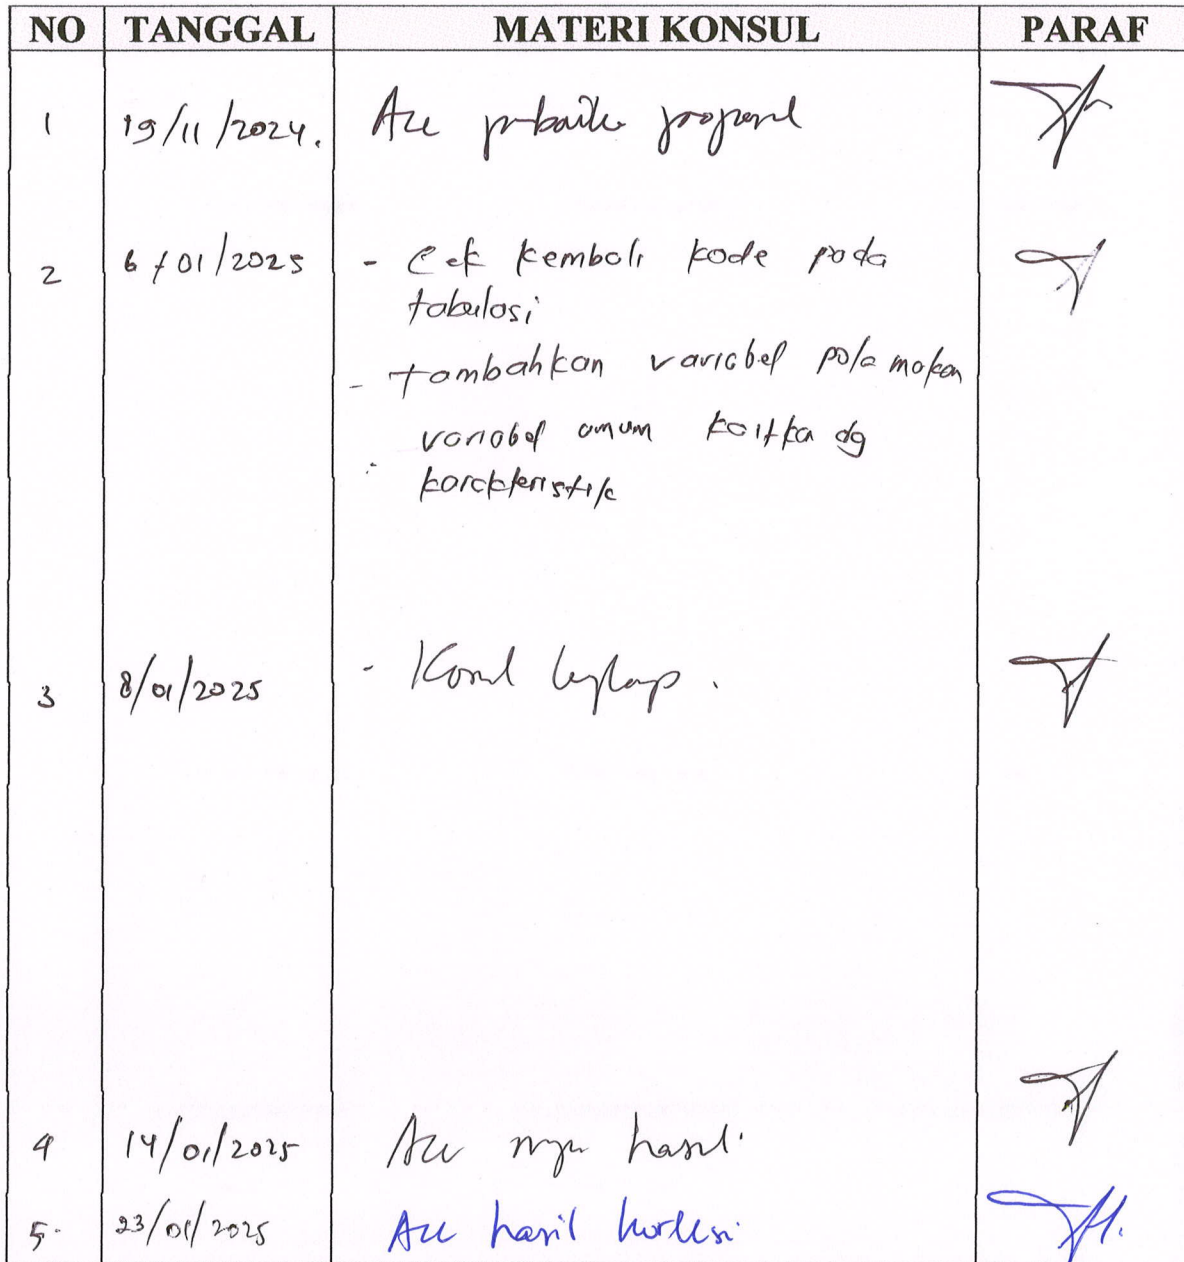 NO TANGGAL MATERI KONSUL PARAF
1 19/11/2024. Acc perbaikan proposal
2 6/01/2025 - Cek kembali kode pada
tabulasi
- tambahkan variabel pola makan
variabel umum kaitka dg
- karakteristik
3 8/01/2025 - Konsul lengkap.
4 14/01/2025 Acc hasil
5. 23/01/2025 Acc hasil